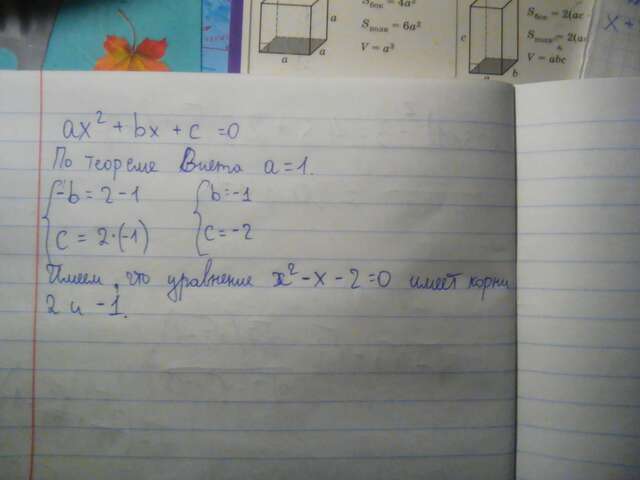 Sбок = 4a²
Sполн = 6a²
V = a³
a
a
a
c
a
b
Sбок = 2(ac
Sполн = 2(a
V = abc
ax² + bx + c = 0
По теореме Виета a = 1.
-b = 2 - 1
b = -1
c = 2·(-1)
c = -2
Имеем, что уравнение x² - x - 2 = 0 имеет корни
2 и -1.